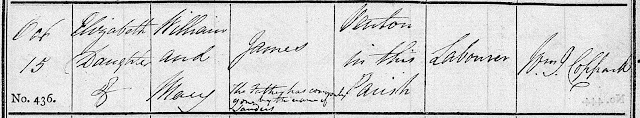 Oct
15
No. 436.
Elizabeth
Daughter
of
William
and
Mary
James
the Father has commonly
gone by the name of
Sanders
Venton
in this
Parish
Labourer
Wm. J. Coppard